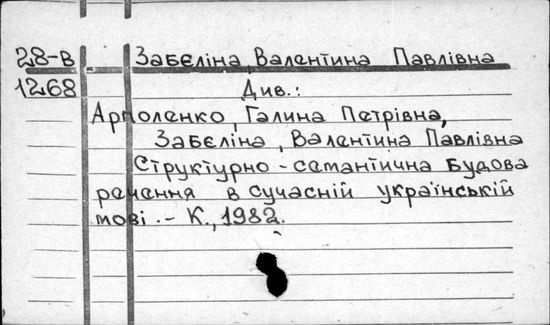 28-в Забєліна, Валентина Павлівна
1268 Див.:
Арполенко, Галина Петрівна,
Забєліна, Валентина Павлівна
Структурно-семантична будова
речення в сучасній українській
мові.- К., 1982.